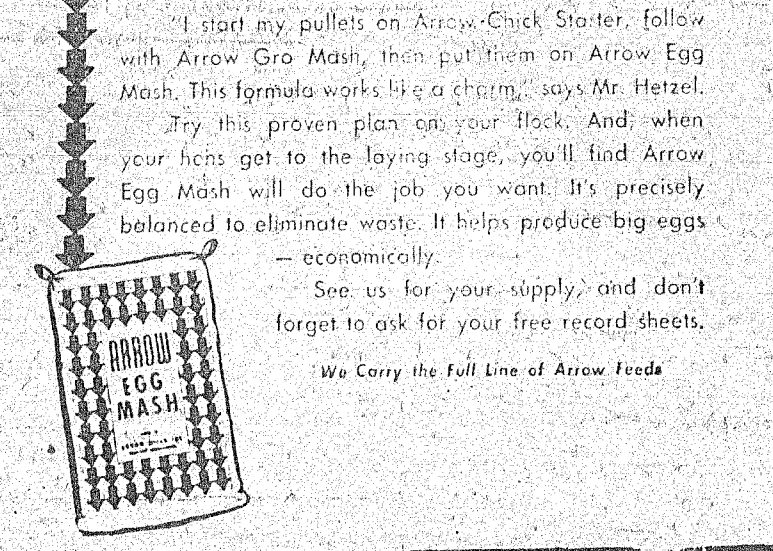 "I start my pullets on Arrow Chick Starter, follow
with Arrow Gro Mash, then put them on Arrow Egg
Mash. This formula works like a charm," says Mr. Hetzel.
Try this proven plan on your flock. And, when
your hens get to the laying stage, you'll find Arrow
Egg Mash will do the job you want. It's precisely
balanced to eliminate waste. It helps produce big eggs
— economically.
See us for your supply, and don't
forget to ask for your free record sheets.
We Carry the Full Line of Arrow Feeds
ARROW
EGG
MASH